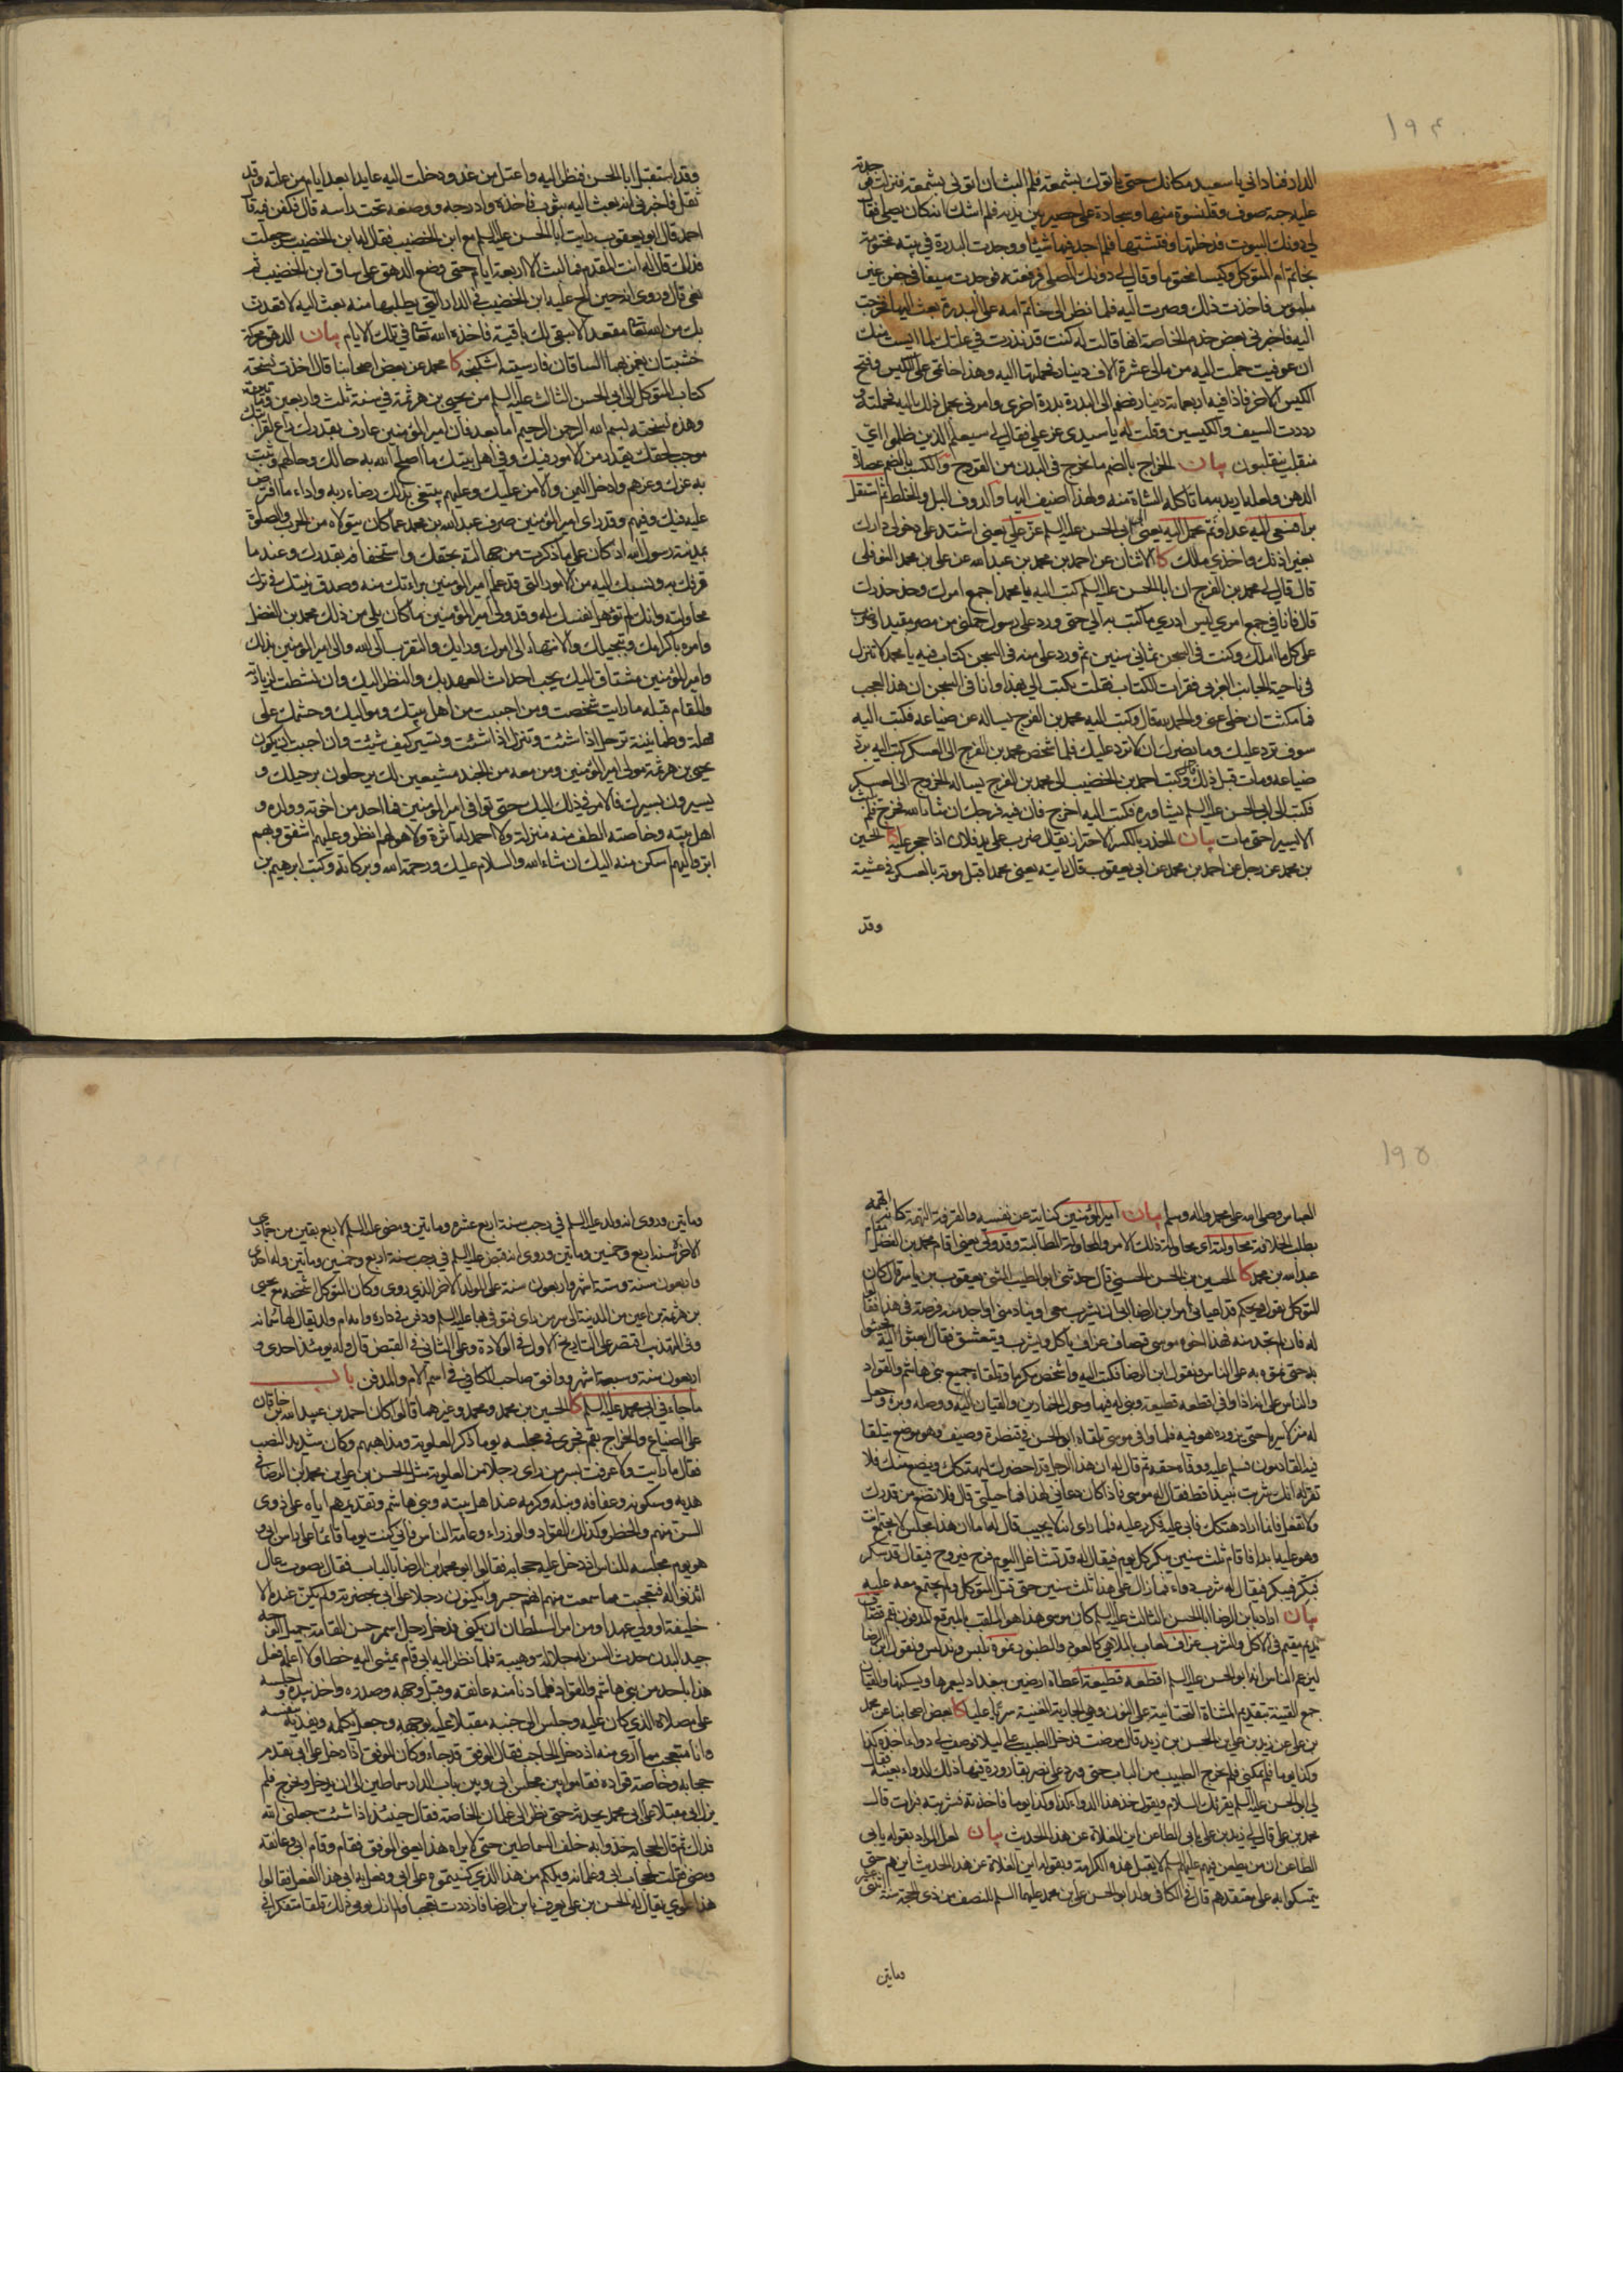 ۱۹۴
الدار فناداني يا سعيد مكانك حتى ياتوك بشمعة فلم البث ان اتوني بشمعة فنزلت فوجدته
عليه جبة صوف وقلنسوة منها وسجادة على حصير بين يديه فلم اشك انه كان يصلي فقال
لي دونك البيوت فدخلتها وفتشتها فلم اجد فيها شيئا ووجدت البدرة في بيته مختومة
بخاتم ام المتوكل وكيسا مختوما وقال لي دونك المصلى فرفعته فوجدت سيفا في جفن غير
ملبوس فاخذت ذلك وصرت اليه فلما نظر الى خاتم امه على البدرة بعث اليها فخرجت
اليه فاخبرني بعض خدم الخاصة انها قالت له كنت قد نذرت في علتك لما ايست منك
ان عوفيت حملت اليه من مالي عشرة الاف دينار فحملتها اليه وهذا خاتمي على الكيس وفتح
الكيس الاخر فاذا فيه اربعمائة دينار فضم الى البدرة بدرة اخرى وامرني بحمل ذلك اليه فحملته و
رددت السيف والكيسين وقلت له يا سيدي عز علي فقال لي سيعلم الذين ظلموا اي
منقلب ينقلبون بيان الخراج بالضم ما يخرج في البدن من القروح والكسب بالضم عصارة
الدهن ولعله اريد به ما تاكله الشاة منه ولهذا اضيف اليها والدوف البل والخلط ثم استقل
من اهنعي اليه عدا وثم عمل اليه يعني الى ابي الحسن عليه السلم عز علي يعني اشتد علي دخولي دارك
بغير اذنك واخذي مالك كا الاثنان عن احمد بن محمد بن عبد الله عن علي بن محمد النوفلي
قال قال لي محمد بن الفرج ان ابا الحسن عليه السلم كتب اليه يا محمد اجمع امرك وخذ حذرك
قال فانا في جمع امري ليس ادري ما كتب به الي حتى ورد علي رسول حملني من مصر مقيدا وضرب
على كل ما املك وكنت في السجن ثماني سنين ثم ورد علي منه في السجن كتاب فيه يا محمد لا تنزل
في ناحية الجانب الغربي فقرات الكتاب فقلت يكتب الي بهذا وانا في السجن ان هذا لعجب
فما مكثت ان خلي عني والحمد لله قال وكتب اليه محمد بن الفرج يساله عن ضياعه فكتب اليه
سوف ترد عليك وما يضرك ان لا ترد عليك فلما شخص محمد بن الفرج الى العسكر كتب اليه برد
ضياعه ومات قبل ذلك قال وكتب احمد بن الخضيب الى محمد بن الفرج يساله الخروج الى العسكر
فكتب الى ابي الحسن عليه السلم يشاوره فكتب اليه اخرج فان فيه فرجك ان شاء الله فخرج فلم يلبث
الا يسيرا حتى مات بيان الحذر بالكسر الاحتراز يقال ضرب على يد فلان اذا حجر عليه كا الحسين
بن محمد عن رجل عن احمد بن محمد عن ابي يعقوب قال رايته يعني محمدا قبل موته بالعسكر في عشية
وقد
وقد استقبل ابا الحسن فنظر اليه واعتل من غد ودخلت اليه عايدا بعد ايام من علته وقد
ثقل فاخبرني انه بعث اليه بثوب فاخذه وادرجه ووضعه تحت راسه قال فكفن فيه قال
احمد قال ابو يعقوب رايت ابا الحسن عليه السلم مع ابن الخضيب فقال له ابن الخضيب سر جعلت
فداك فقال له انت المقدم فما لبث الا اربعة ايام حتى وضع الدهق على ساق ابن الخضيب ثم
نعي قال وروي انه حين الح عليه ابن الخضيب في الدار التي يطلبها منه بعث اليه لاقعدن
بك من الله تعالى مقعدا لا يبقى لك باقية فاخذه الله تعالى في تلك الايام بيان الدهق محركة
خشبتان يغمز بهما الساقان فارسيته اشكنجه كا محمد عن بعض اصحابنا قال اخذت نسخة
كتاب المتوكل الى ابي الحسن الثالث عليه السلم من يحيى بن هرثمة في سنة ثلث واربعين ومائتين
وهذه نسخته بسم الله الرحمن الرحيم اما بعد فان امير المؤمنين عارف بقدرك راع لقرابتك
موجب لحقك يقدر من الامور فيك وفي اهل بيتك ما اصلح الله به حالك وحالهم وثبت
به عزك وعزهم وادخل اليمن والامن عليك وعليهم يبتغي بذلك رضاء ربه واداء ما افترض
عليه فيك وفيهم وقد راى امير المؤمنين صرف عبد الله بن محمد عما كان يتولاه من الحرب والصلوة
بمدينة رسول الله اذ كان على ما ذكرت من جهالته بحقك واستخفافه بقدرك وعندما
قرفك به ونسبك اليه من الامور التي قد علم امير المؤمنين براءتك منه وصدق نيتك في ترك
محاولته وانك لم تؤهل نفسك له وقد ولى امير المؤمنين ما كان يلي من ذلك محمد بن الفضل
وامره باكرامك وتبجيلك والانتهاء الى امرك ورايك والتقرب الى الله والى امير المؤمنين بذلك
وامير المؤمنين مشتاق اليك يحب احداث العهد بك والنظر اليك وان نشطت لزيارته
والمقام قبله ما رايت شخصت ومن احببت من اهل بيتك ومواليك وحشمك على
مهلة وطمانينة ترحل اذا شئت وتنزل اذا شئت وتسير كيف شئت وان احببت ان يكون
يحيى بن هرثمة مولى امير المؤمنين ومن معه من الجند مشيعين لك يرحلون برحيلك و
يسيرون بسيرك فالامر في ذلك اليك حتى توافي امير المؤمنين فما احد من اخوته وولده و
اهل بيته وخاصته الطف منه منزلة ولا احمد له اثرة ولا هو لهم انظر وعليهم اشفق وبهم
ابر واليهم اسكن منه اليك ان شاء الله والسلام عليك ورحمة الله وبركاته وكتب ابرهيم بن
۱۹۵
العباس وصلى الله على محمد واله وسلم بيان امير المؤمنين كناية عن نفسه والقرفة التهمة كانه اتهمه
بطلب الخلافة محاولته اي محاولة ذلك الامر والمحاولة المطالبة وقد ولى يعني اقام محمد بن الفضل مقام
عبد الله بن محمد كا الحسين بن الحسن الحسني قال حدثني ابو الطيب المثنى يعقوب بن ياسر قال كان
المتوكل يقول ويحكم قد اعياني امر ابن الرضا ابى ان يشرب معي او ينادمني او اجد منه فرصة في هذا فقالوا
له فان لم تجد منه فهذا اخوه موسى قصاف عزاف ياكل ويشرب ويتعشق فقال ابعثوا اليه فجيئوا
به حتى نموه به على الناس ونقول ابن الرضا فكتب اليه واشخص مكرما وتلقاه جميع بني هاشم والقواد
والناس على انه اذا وافى اقطعه قطيعة وبنى له فيها وحول الخمارين والقيان اليه ووصله وبره وجعل
له منزلا سريا حتى يزوره هو فيه فلما وافى موسى تلقاه ابو الحسن في قنطرة وصيف وهو موضع يتلقا
فيه القادمون فسلم عليه ووفاه حقه ثم قال له ان هذا الرجل قد احضرك ليهتكك ويضع منك فلا
تقر له انك شربت نبيذا قط فقال له موسى فاذا كان دعاني لهذا فما حيلتي قال فلا تضع من قدرك
ولا تفعل فانما اراد هتكك فابى عليه فكرر عليه فلما راى انه لا يجيب قال له اما ان هذا مجلس لا تجتمع انت
وهو عليه ابدا فاقام ثلث سنين يبكر كل يوم فيقال له قد تشاغل اليوم فرح فيروح فيقال قد سكر
فبكر فيبكر فيقال له شرب دواء فما زال على هذا ثلث سنين حتى قتل المتوكل ولم يجتمع معه عليه
بيان اراد بابن الرضا ابا الحسن الثالث عليه السلم كان موسى هذا هو الملقب بالمبرقع المدفون بقم قصاف
نديم مقيم في الاكل والشرب عزاف لعاب بالملاهي كالعود والطنبور نموه نلبس وندلس ونقول ابن الرضا
ليزعم الناس انه ابو الحسن عليه السلم اقطعه قطيعة اعطاه ارضين ببغداد ليعمرها ويسكنها والقيان
جمع القينة بتقديم المثناة التحتانية على النون وهي الجارية المغنية سريا عليا كا بعض اصحابنا عن محمد
بن علي عن زيد بن علي بن الحسن بن زيد قال مرضت فدخل الطبيب علي ليلا فوصف لي دواء اخذه كذا
وكذا يوما فلم يمكني فلم يخرج الطبيب من الباب حتى ورد علي نصر بقارورة فيها ذلك الدواء بعينه فقال
لي ابو الحسن عليه السلم يقرئك السلام ويقول خذ هذا الدواء كذا وكذا يوما فاخذته فشربته فبرات قال
محمد بن علي قال لي زيد بن علي يابى الطاعن اين الغلاة عن هذا الحديث بيان لعل المراد بقوله يابى
الطاعن ان من يطعن فيهم عليهم السلم لا يقبل هذه الكرامة وبقوله اين الغلاة عن هذا الحديث اين هم حتى
يتمسكوا به على معتقدهم قال في الكافي ولد ابو الحسن علي بن محمد عليهما السلم للنصف من ذي الحجة سنة اثنتي عشر
وماتين
وماتين وروي انه ولد عليه السلم في رجب سنة اربع عشره وماتين ومضى عليه السلم لاربع بقين من جمادى
الاخرة سنة اربع وخمسين وماتين وروي انه قبض عليه السلم في رجب سنة اربع وخمسين وماتين وله احدى
واربعون سنة وستة اشهر واربعون سنة على المولد الاخر الذي روي وكان المتوكل اشخصه مع يحيى
بن هرثمة بن اعين من المدينة الى سر من راى فتوفي بها عليه السلم ودفن في داره وامه ام ولد يقال لها سمانه
وفي التهذيب اقتصر على التاريخ الاول في الولادة وعلى الثاني في القبض قال وله يومئذ احدى و
اربعون سنة وسبعة اشهر ووافق صاحب الكافي في اسم الام والمدفن باب
ما جاء في ابي محمد عليه السلم كا الحسين بن محمد ومحمد وغيرهما قالوا كان احمد بن عبيد الله بن خاقان
على الضياع والخراج بقم فجرى في مجلسه يوما ذكر العلوية ومذاهبهم وكان شديد النصب
فقال ما رايت ولا عرفت بسر من راى رجلا من العلوية مثل الحسن بن علي بن محمد بن الرضا في
هديه وسكونه وعفافه ونبله وكرمه عند اهل بيته وبني هاشم وتقديمهم اياه على ذوي
السن منهم والخطر وكذلك القواد والوزراء وعامة الناس فاني كنت يوما قائما على راس ابي و
هو يوم مجلسه للناس اذ دخل عليه حجابه فقالوا ابو محمد بن الرضا بالباب فقال بصوت عال
ائذنوا له فتعجبت مما سمعت منهم انهم جسروا يكنون رجلا على ابي بحضرته ولم يكن عنده الا
خليفة او ولي عهد او من امر السلطان ان يكنى فدخل رجل اسمر حسن القامة جميل الوجه
جيد البدن حدث السن له جلالة وهيبة فلما نظر اليه ابي قام يمشي اليه خطا ولا اعلمه فعل
هذا باحد من بني هاشم والقواد فلما دنا منه عانقه وقبل وجهه وصدره واخذ بيده واجلسه
على مصلاه الذي كان عليه وجلس الى جنبه مقبلا عليه بوجهه وجعل يكلمه ويفديه بنفسه
وانا متعجب مما ارى منه اذ دخل الحاجب فقال الموفق قد جاء وكان الموفق اذا دخل على ابي تقدم
حجابه وخاصة قواده فقاموا بين مجلس ابي وبين باب الدار سماطين الى ان يدخل ويخرج فلم
يزل ابي مقبلا على ابي محمد يحدثه حتى نظر الى غلمان الخاصة فقال حينئذ اذا شئت جعلني الله
فداك ثم قال لحجابه خذوا به خلف السماطين حتى لا يراه هذا يعني الموفق فقام وقام ابي وعانقه
ومضى فقلت لحجاب ابي وغلمانه ويلكم من هذا الذي كنيتموه على ابي وفعل به ابي هذا الفعل فقالوا
هذا علوي يقال له الحسن بن علي يعرف بابن الرضا فازددت تعجبا ولم ازل يومي ذلك قلقا متفكرا في